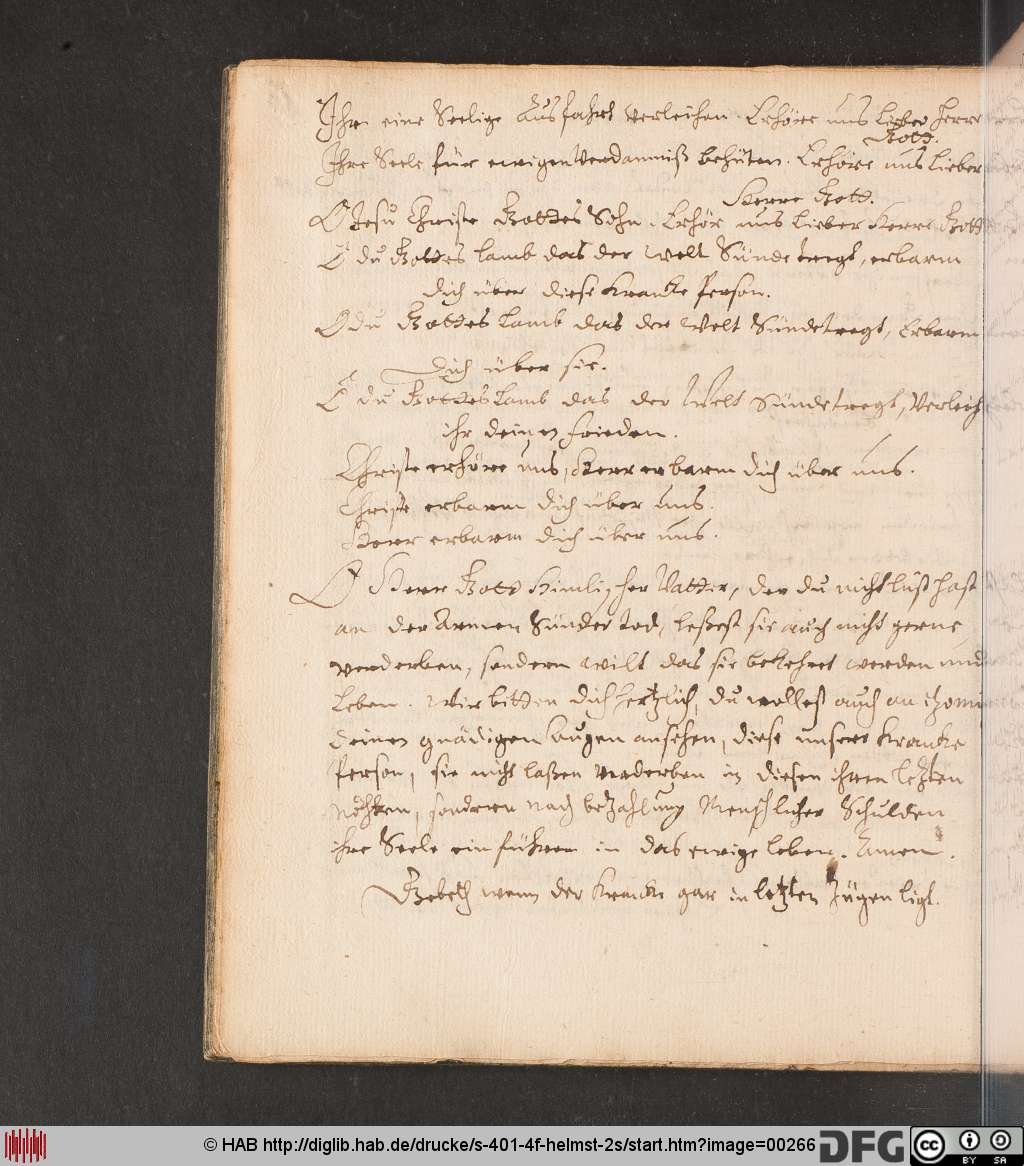 Ihr eine Seelige Ausfahrt verleihen. Erhöre uns Lieber Herre
Gott.
Ihre Seele für ewigen Verdamniß behüten. Erhöre uns Lieber
Herre Gott.
O Jesu Christe Gottes Sohn. Erhör uns Lieber Herre Gott
O du Gottes Lamb das der Welt Sünde tregt, erbarm
dich über diese Krancke Person.
O du Gottes Lamb das der Welt Sünde tregt, Erbarm
Dich über sie.
O du Gottes Lamb das der Welt Sünde tregt, Verleih
ihr deinen frieden.
Christe erhöre uns, Herr erbarm dich über uns.
Christe erbarm dich über uns.
Herr erbarm dich über uns.
O Herr Gott Himlischer Vatter, der du nicht lust hast
an der Armen Sünder tod, leßest sie auch nicht gerne
verderben, sondern wilt das sie bekehret werden und
Leben. Wir bitten dich hertzlich, du wollest auch an
deinen gnädigen Augen ansehen, diese unsere Krancke
Person, sie nicht laßen verderben in diesen ihren letzten
Nöhten, sondern nach bezahlung Menschlicher Schulden
ihre Seele einführen in das ewige leben. Amen.
Gebeth wenn der Krancke gar in letzten Zügen ligt.
© HAB http://diglib.hab.de/drucke/s-401-4f-helmst-2s/start.htm?image=00266
DFG
cc BY SA